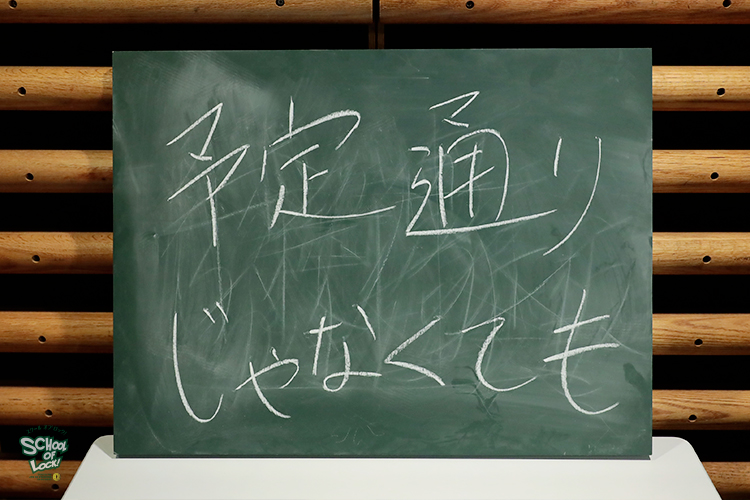 予定通り
じゃなくても
SCHOOL
OF
LOCK!